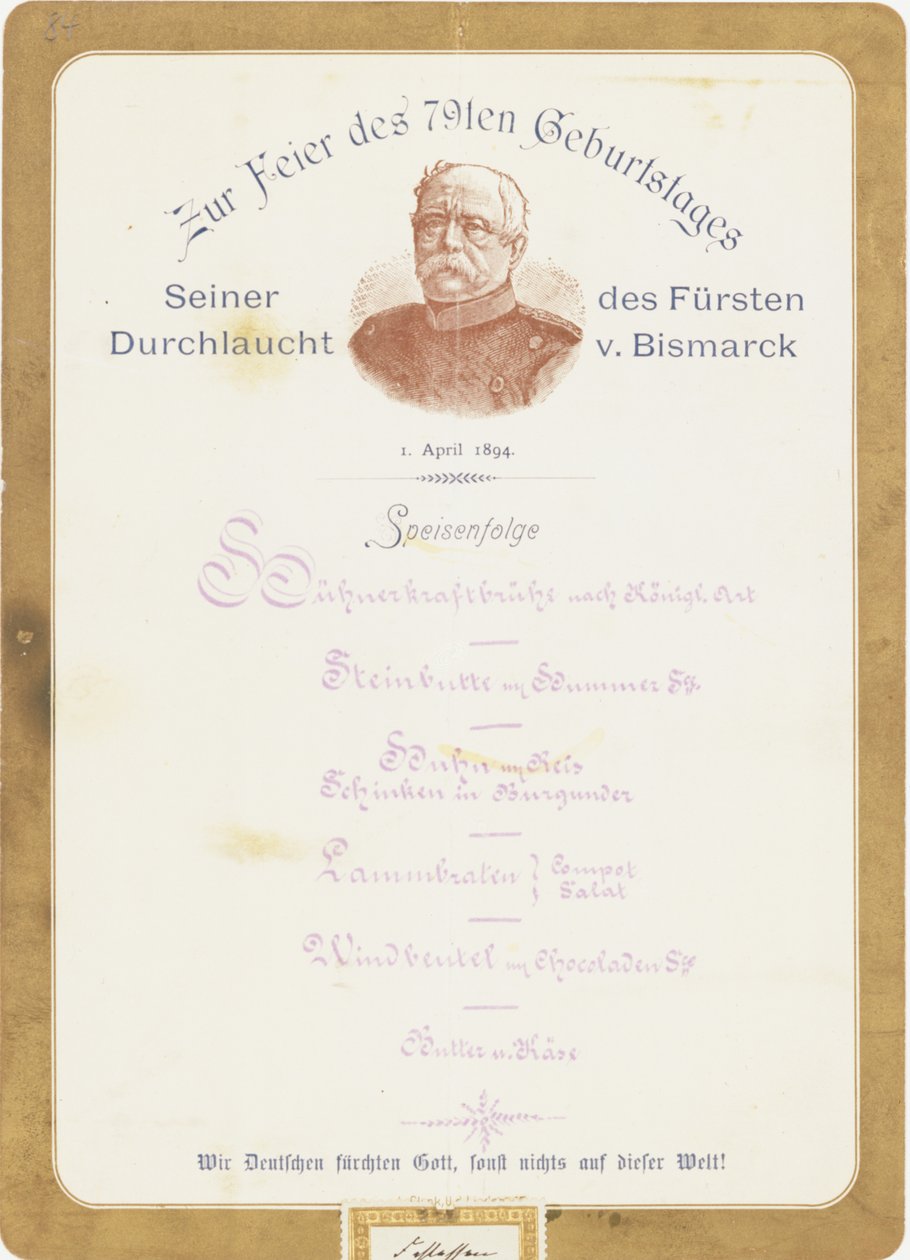 84
Zur Feier des 79ten Geburtstages
Seiner
Durchlaucht
des Fürsten
v. Bismarck
1. April 1894.
Speisenfolge
Hühnerkraftbrühe nach Königl. Art
Steinbutte m. Hummer Sce.
Huhn m. Reis
Schinken in Burgunder
Lammbraten } Compot
Salat
Windbeutel m. Chocoladen Sce
Butter u. Käse
Wir Deutschen fürchten Gott, sonst nichts auf dieser Welt!